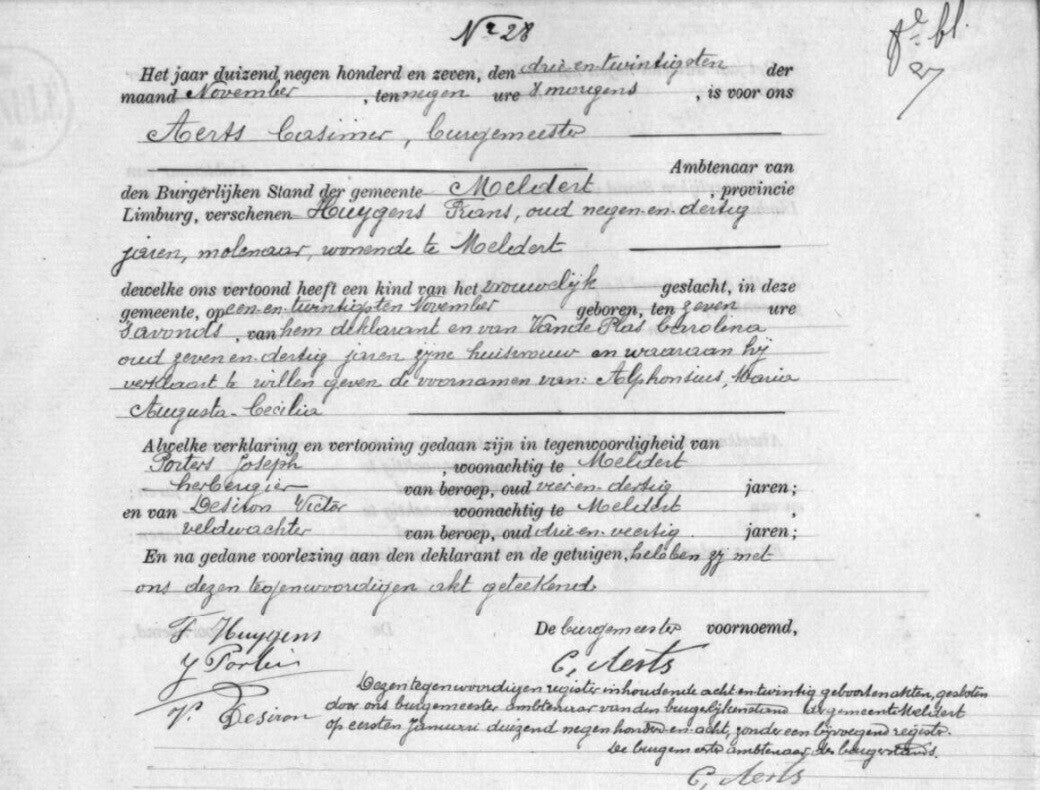 Nr 28
Het jaar duizend negen honderd en zeven, den drie en twintigsten der
maand November, ten negen ure 's morgens, is voor ons
Aerts Casimer, burgemeester
Ambtenaar van
den Burgerlijken Stand der gemeente Meldert, provincie
Limburg, verschenen Huygens Frans, oud negen en dertig
jaren, molenaar, wonende te Meldert
dewelke ons vertoond heeft een kind van het vrouwelijk geslacht, in deze
gemeente, op een en twintigsten November geboren, ten zeven ure
savonds, van hem deklarant en van Vande Plas Carolina
oud zeven en dertig jaren zijne huisvrouw en waaraan hij
verklaart te willen geven de voornamen van: Alphonsius, Maria
Augusta Cecilia
Alwelke verklaring en vertooning gedaan zijn in tegenwoordigheid van
Porters Joseph, woonachtig te Meldert
herbergier van beroep, oud vier en dertig jaren;
en van Desiron Victor woonachtig te Meldert,
veldwachter van beroep, oud drie en veertig jaren;
En na gedane voorlezing aan den deklarant en de getuigen, hebben zij met
ons dezen tegenwoordigen akt geteekend
F Huygens
De burgemeester voornoemd,
C, Aerts
V. Desiron
Dezen tegenwoordigen register inhoudende acht en twintig geboorten akten, gesloten
door ons burgemeester ambtenaar van den burgelijken stand der gemeente Meldert
op eersten Januari duizend negen honderd en acht, zonder een bijvoegend register.
De burgemeester ambtenaar des burgerstands.
C, Aerts